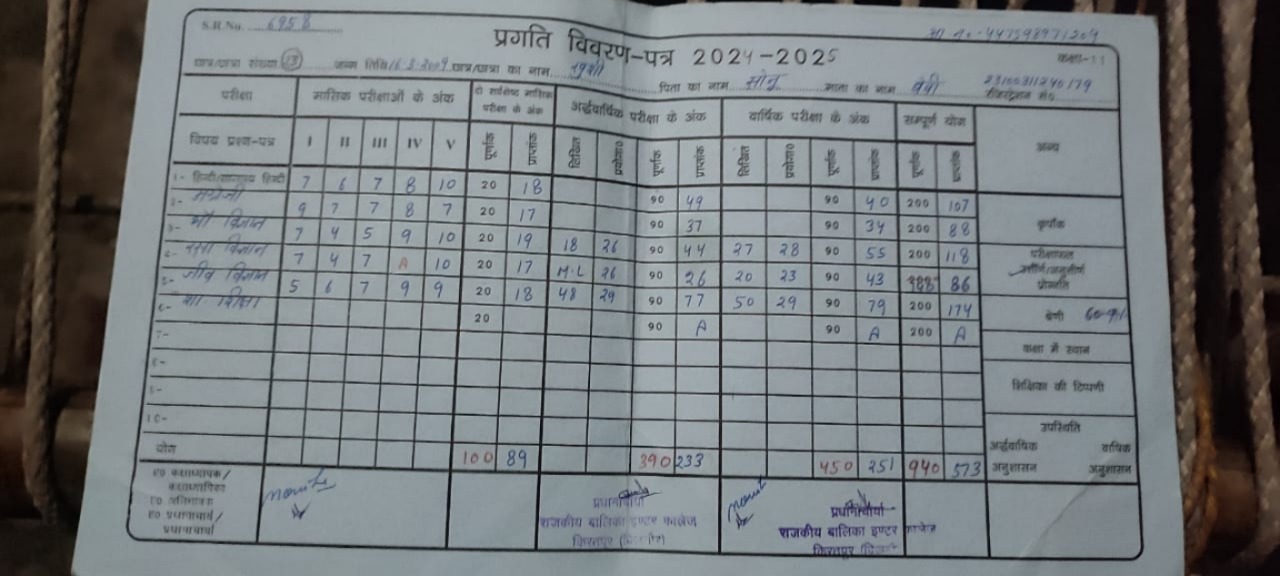 S.R.No. 6958
प्रगति विवरण-पत्र 2024-2025
कक्षा-11
छात्र/छात्रा संख्या 13 जन्म तिथि 16-3-2009 छात्र/छात्रा का नाम पिता का नाम सोनू माता का नाम
परीक्षा मासिक परीक्षाओं के अंक दो सर्वश्रेष्ठ मासिक परीक्षा के अंक अर्द्धवार्षिक परीक्षा के अंक वार्षिक परीक्षा के अंक सम्पूर्ण योग अन्य
विषय प्रश्न-पत्र I II III IV V पूर्णांक प्राप्तांक लिखित प्रयोगा० पूर्णांक प्राप्तांक लिखित प्रयोगा० पूर्णांक प्राप्तांक पूर्णांक प्राप्तांक
1- हिन्दी/सामान्य हिन्दी 7 6 7 8 10 20 18 90 49 90 40 200 107
2- अंग्रेजी 9 7 7 8 7 20 17 90 37 90 34 200 88
कृपांक
3- भौ विज्ञान 7 4 5 9 10 20 19 18 26 90 44 27 28 90 55 200 118
परीक्षाफल
उत्तीर्ण/अनुत्तीर्ण
प्रोन्नति
4- रसा विज्ञान 7 4 7 A 10 20 17 M.L 26 90 26 20 23 90 43 86
5- जीव विज्ञान 5 6 7 9 9 20 18 48 29 90 77 50 29 90 79 200 174
श्रेणी
6- शा शिक्षा 20 90 A 90 A 200 A
7-
कक्षा में स्थान
8-
शिक्षिका की टिप्पणी
9-
10-
उपस्थिति
अर्द्धवार्षिक वार्षिक
योग 100 89 390 233 450 251 940 573
अनुशासन अनुशासन
ह० कक्षाध्यापक/
कक्षाध्यापिका
ह० अभिभावक
ह० प्रधानाचार्य/
प्रधानाचार्या
प्रधानाचार्या
राजकीय बालिका इण्टर कालेज
किरतपुर (बिजनौर)
प्रधानाचार्या
राजकीय बालिका इण्टर कालेज
किरतपुर